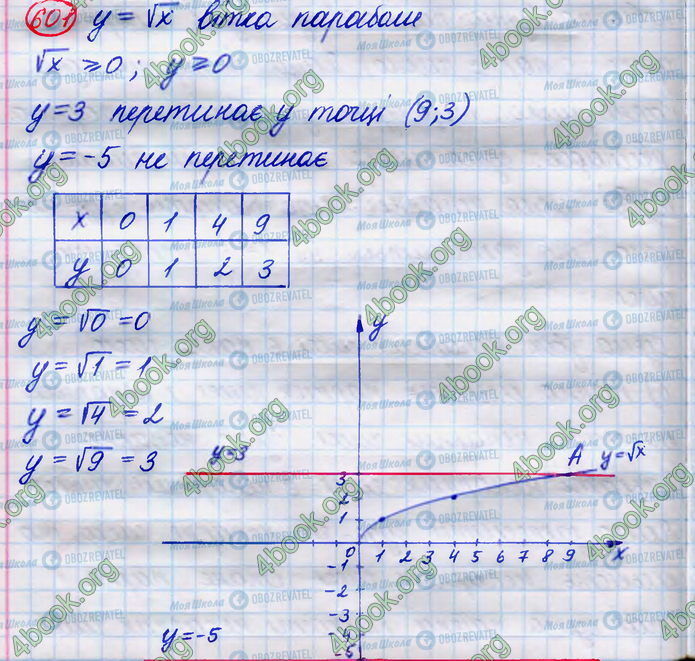 601 y = √x вітка параболи
√x ≥ 0; y ≥ 0
y = 3 перетинає у точці (9; 3)
y = -5 не перетинає
x 0 1 4 9
y 0 1 2 3
y = √0 = 0
y = √1 = 1
y = √4 = 2
y = √9 = 3
y
y=3 A y=√x
3
2
1
0 1 2 3 4 5 6 7 8 9 x
-1
-2
-3
y=-5 -4
-5
4book.org
Моя Школа OBOZREVATEL